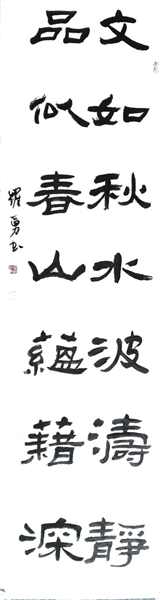 文如秋水波濤靜
品似春山蘊藉深
羅勇书